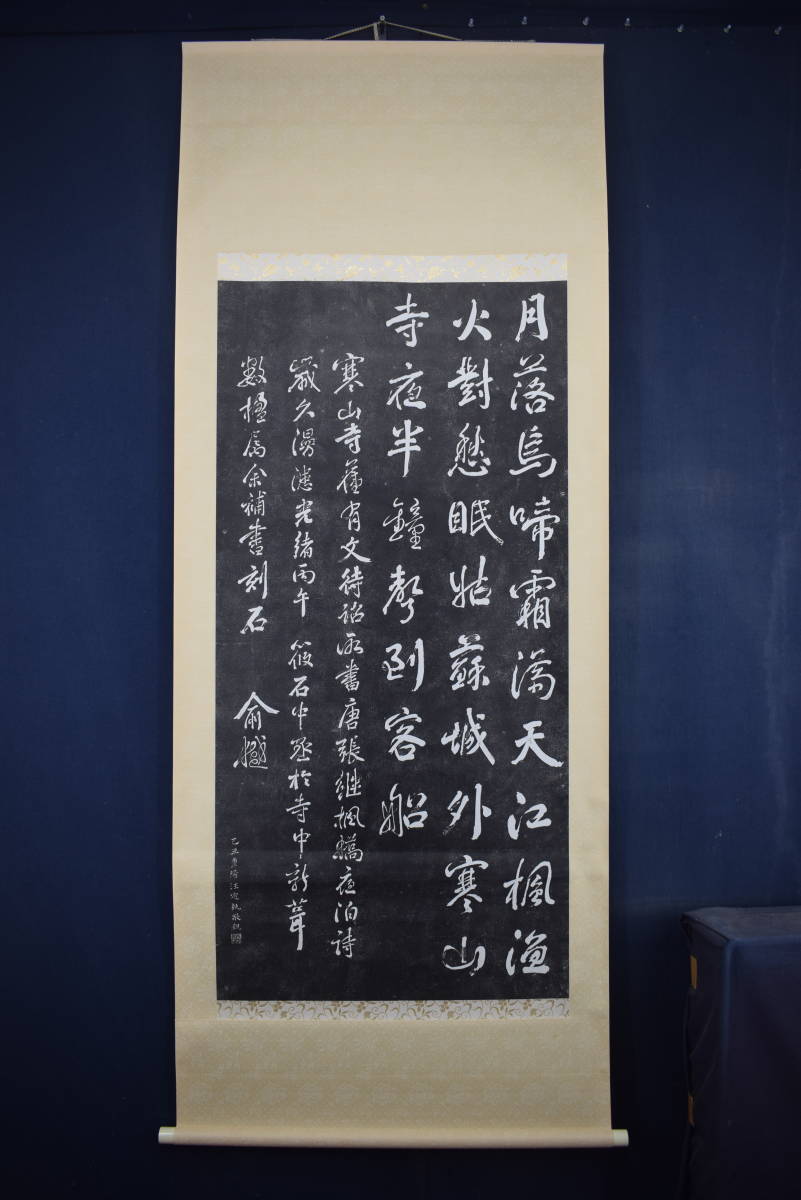 月落烏啼霜滿天江楓漁
火對愁眠姑蘇城外寒山
寺夜半鐘聲到客船
寒山寺舊有文待詔所書唐張繼楓橋夜泊詩
歲久漫漶光緒丙午筱石中丞於寺中新葺
數楹属余補書刻石
俞樾
乙丑